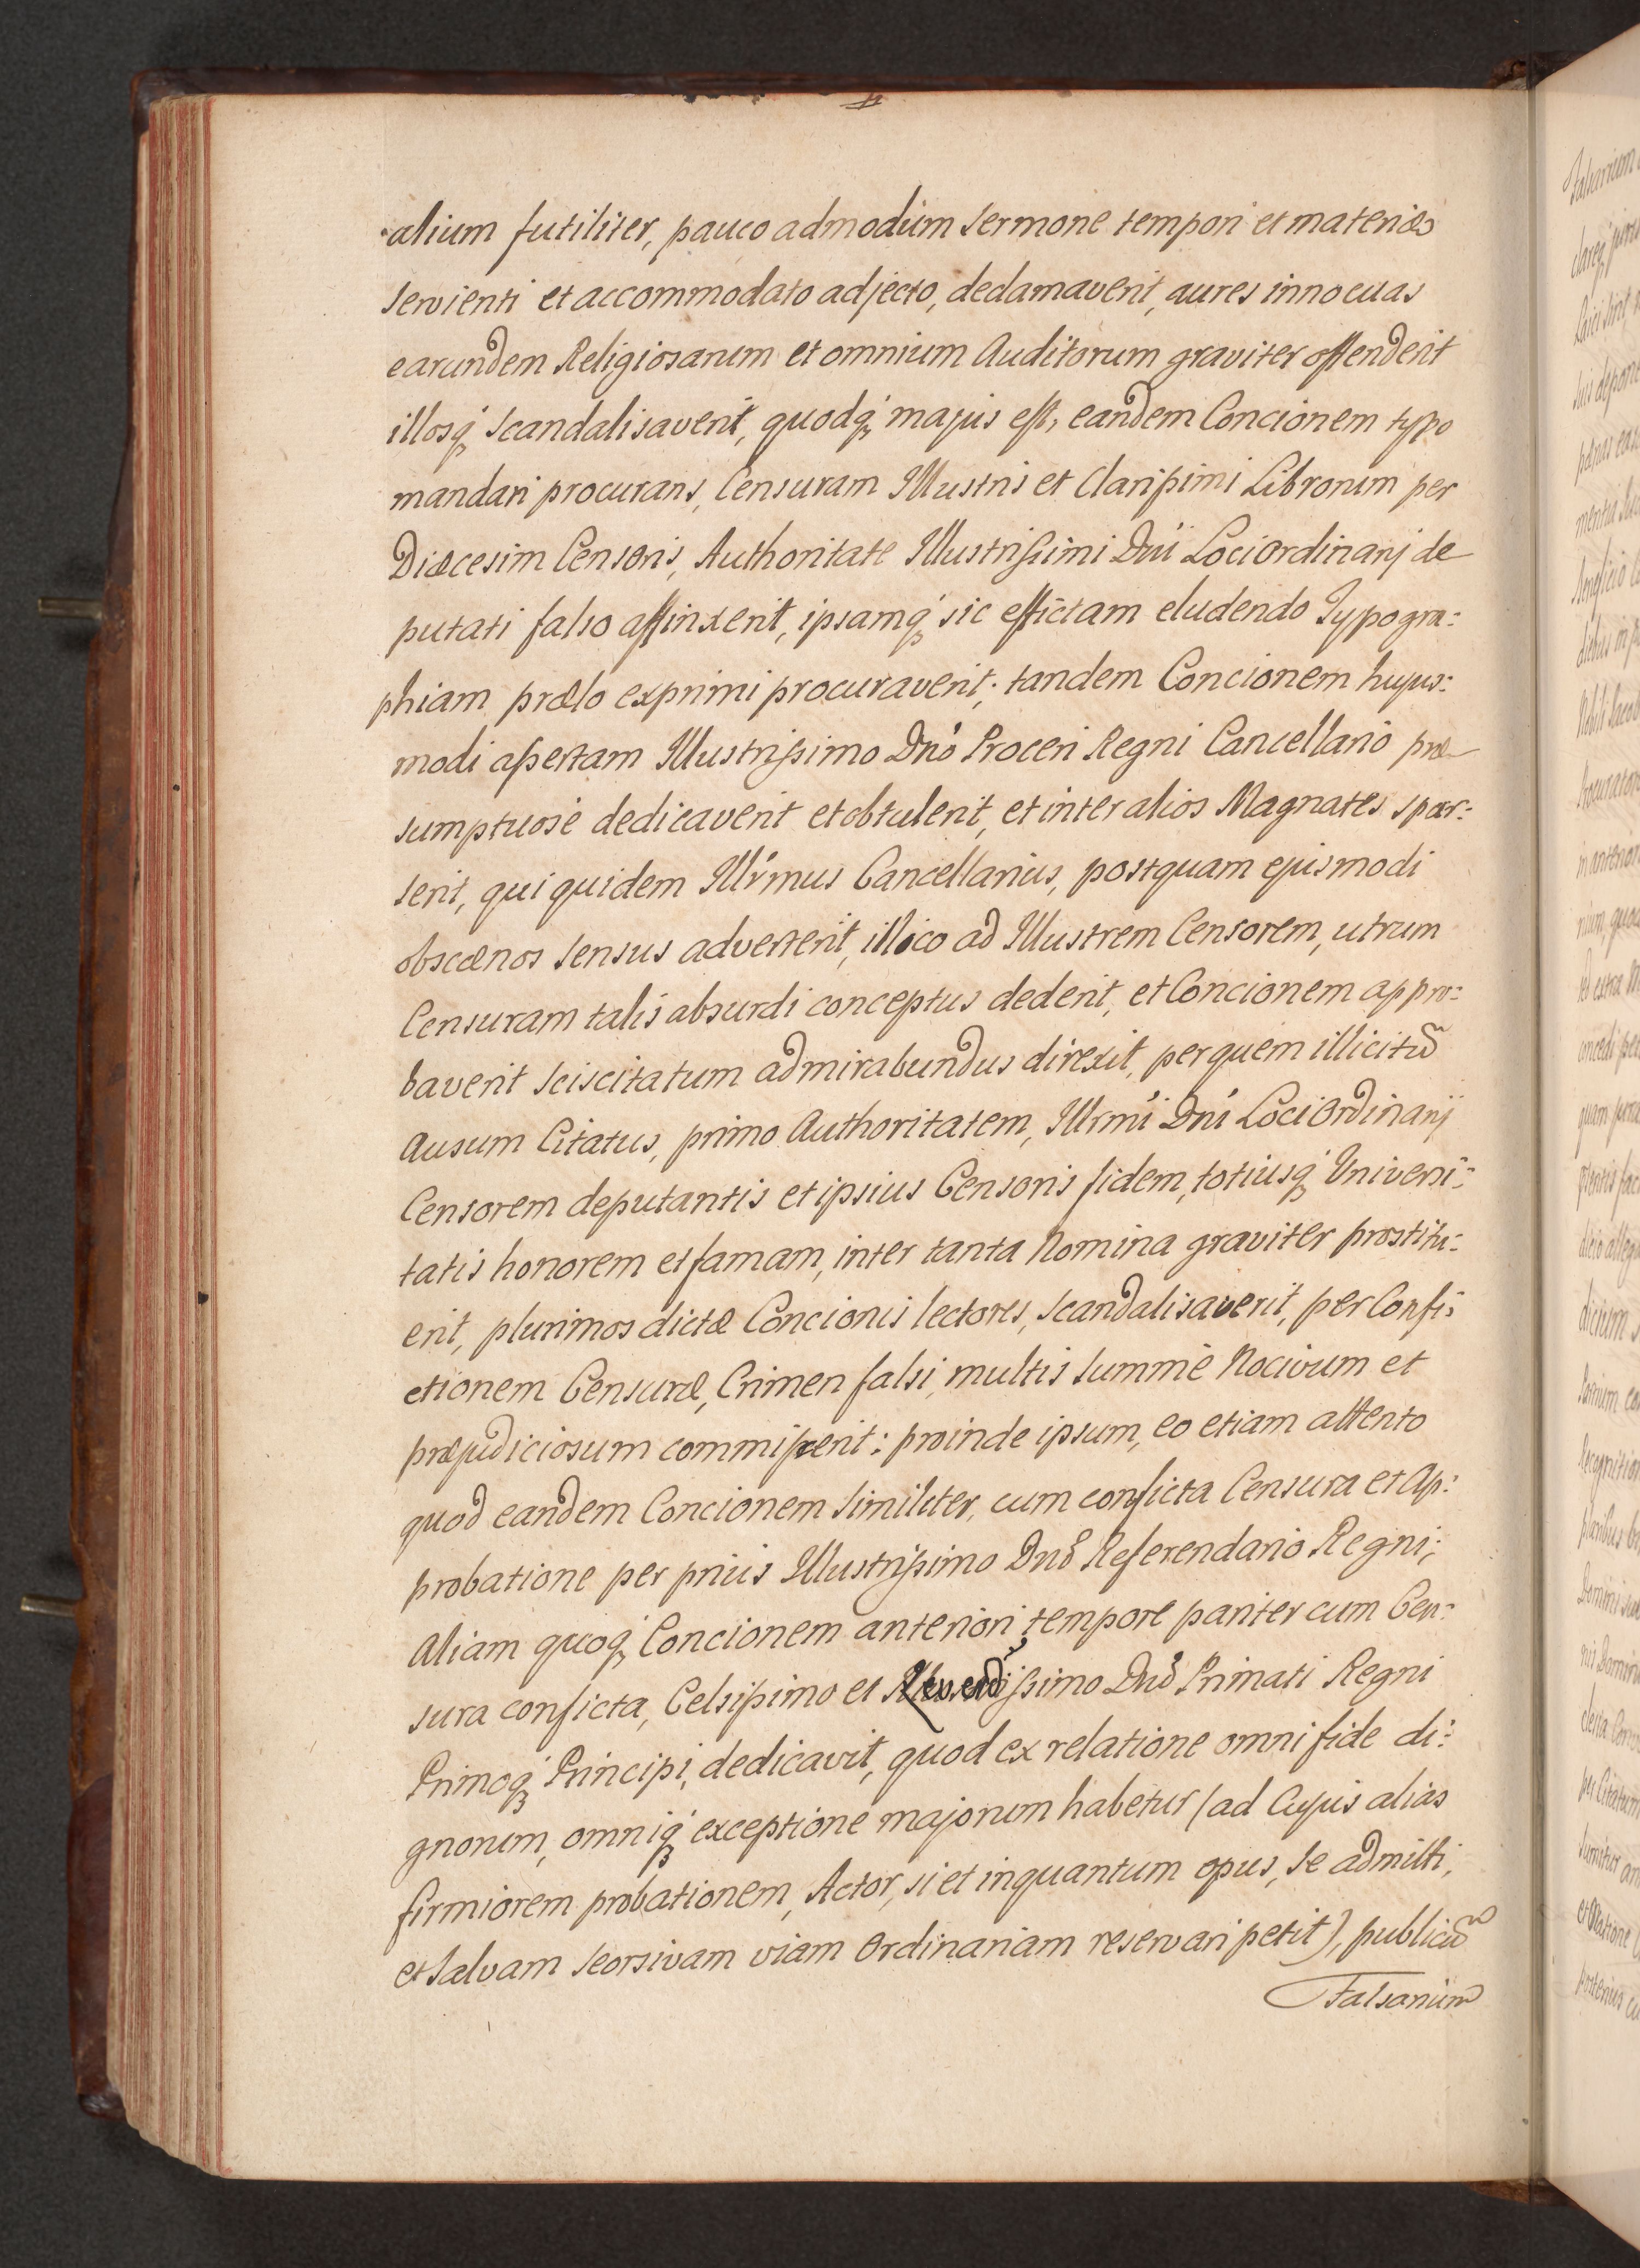 alium futiliter, pauco admodùm sermone tempori et materiæ
servienti et accommodato adjecto, declamaverit, aures innocuas
earundem Religiosarum et omnium Auditorum graviter offenderit
illosq́; scandalisaverit, quodq́; majus est, eandem Concionem typo
mandari procurans, Censuram Illustris et Clarissimi Librorum per
Diæcesim Censoris, Authoritate Illustrissimi Dnï Loci Ordinarij de
putati falso affinxerit, ipsamq́; sic effictam eludendo Typogra:
phiam prælo exprimi procuraverit; tandem Concionem hujus:
modi assertam Illustrissimo Dnó Proceri Regni Cancellario præ
sumptuosè dedicaverit et obtulerit, et inter alios Magnates spar:
serit, qui quidem Illr̃mus Cancellarius, postquam ejusmodi
obscænos sensus adverterit, illico ad Illustrem Censorem, utrum
Censuram talis absurdi conceptus dederit, et Concionem appro:
baverit sciscitatum admirabundus direxit, per quem illicitũ
Ausum Citatus, primo Authoritatem, Illrmi Dni Loci Ordinarij
Censorem deputantis et ipsius Censoris fidem, totiusq́; Universi:
tatis honorem et famam, inter tanta Nomina graviter prostitu:
erit, plurimos dictæ Concionis lectores, scandalisaverit, per Confi:
ctionem Censuræ, Crimen falsi, multis summè Nocivum et
præjudiciosum commiserit: proinde ipsum, eo etiam attento
quod eandem Concionem similiter, cum conficta Censura et Ap:
probatione per prius Illustrissimo Dnō Referendario Regni;
Aliam quoq́; Concionem anteriori tempore pariter cum Cen:
sura conficta, Celsissimo et Reverendissimo Dnō Primati Regni
Primoq́; Principi, dedicavit, quod ex relatione omni fide di:
gnorum, omniq́; exceptione majorum habetur (ad Cujus alias
firmiorem probationem, Actor, si et inquantum opus, se admitti,
et salvam seorsivam viam Ordinariam reservari petit), publicũ
Falsarium